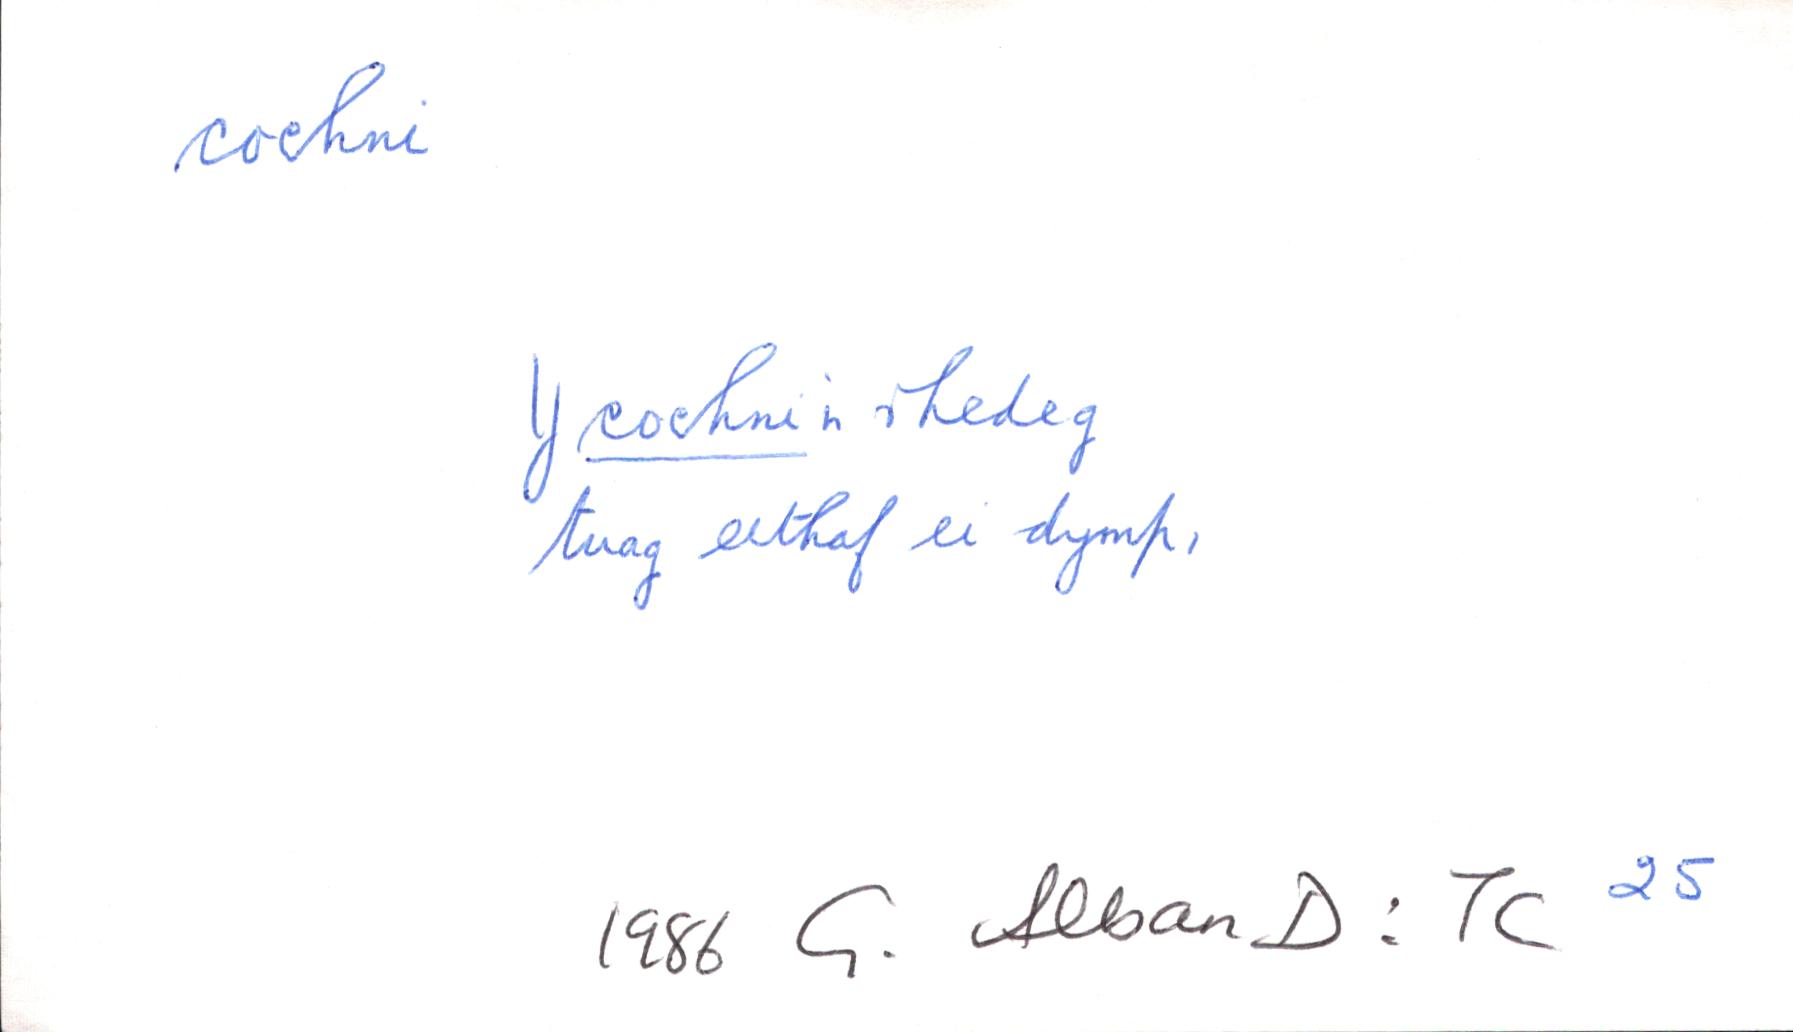 cochni
Y cochni'n rhedeg
tuag eithaf ei dymp,
1986 G. Alban D: TC 25